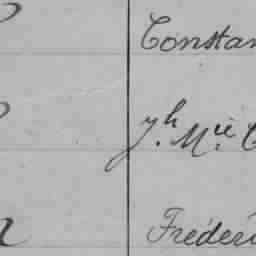 Constan
Jh. Mie C
Fréderi